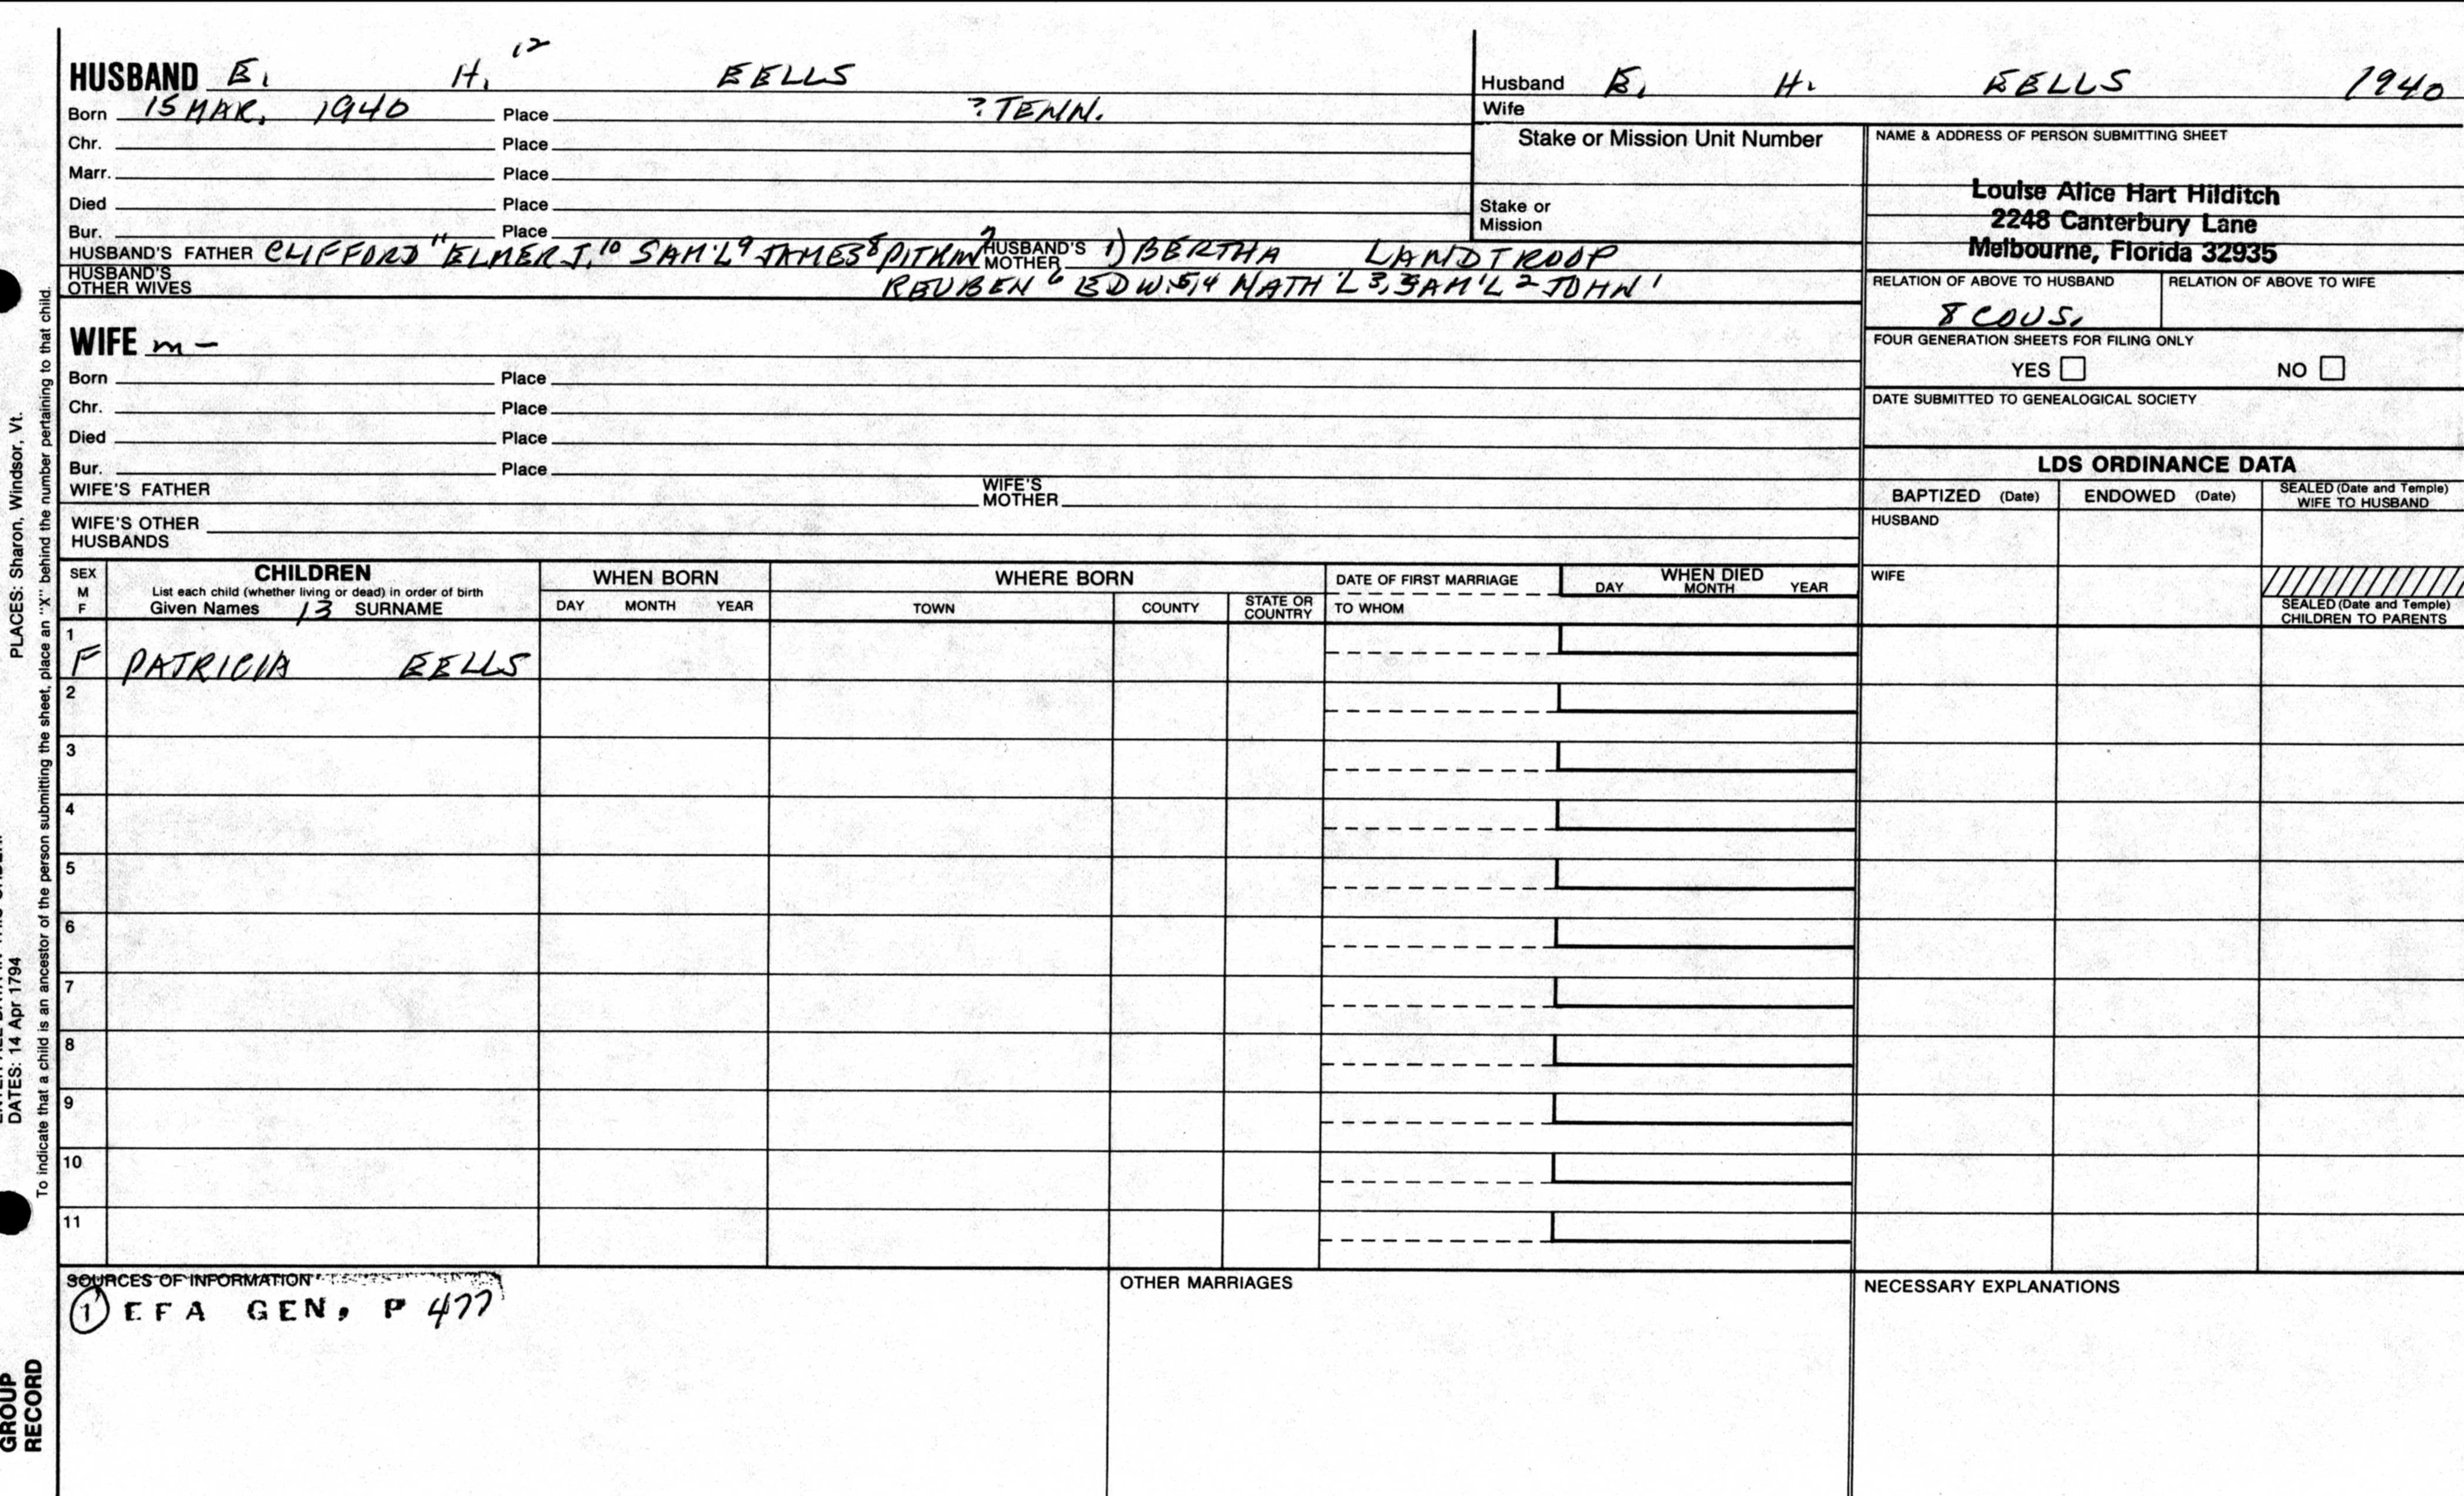 12
HUSBAND E. H. EELLS
Born 15 MAR, 1940 Place ? TENN.
Chr. Place
Marr. Place
Died Place
Bur. Place
HUSBAND'S FATHER CLIFFORD 11 ELMER J. 10 SAM'L 9 JAMES 8 PITKIN 7 HUSBAND'S MOTHER 1) BERTHA LANDTROOP
HUSBAND'S OTHER WIVES REUBEN 6 EDW. 5,4 NATH'L 3, SAM'L 2 JOHN 1
WIFE m -
Born Place
Chr. Place
Died Place
Bur. Place
WIFE'S FATHER WIFE'S MOTHER
WIFE'S OTHER HUSBANDS
Husband E. H. EELLS 1940
Wife
Stake or Mission Unit Number
Stake or
Mission
NAME & ADDRESS OF PERSON SUBMITTING SHEET
Louise Alice Hart Hilditch
2248 Canterbury Lane
Melbourne, Florida 32935
RELATION OF ABOVE TO HUSBAND RELATION OF ABOVE TO WIFE
8 COUS.
FOUR GENERATION SHEETS FOR FILING ONLY
YES NO
DATE SUBMITTED TO GENEALOGICAL SOCIETY
LDS ORDINANCE DATA
BAPTIZED (Date) ENDOWED (Date) SEALED (Date and Temple) WIFE TO HUSBAND
HUSBAND
WIFE
SEALED (Date and Temple)
CHILDREN TO PARENTS
SEX M F
CHILDREN
List each child (whether living or dead) in order of birth
Given Names 13 SURNAME
WHEN BORN
DAY MONTH YEAR
WHERE BORN
TOWN COUNTY STATE OR COUNTRY
DATE OF FIRST MARRIAGE
TO WHOM
WHEN DIED
DAY MONTH YEAR
1
F PATRICIA EELLS
2
3
4
5
6
7
8
9
10
11
SOURCES OF INFORMATION
1 EFA GEN, P 477
OTHER MARRIAGES
NECESSARY EXPLANATIONS
PLACES: Sharon, Windsor, Vt.
DATES: 14 Apr 1794
To indicate that a child is an ancestor of the person submitting the sheet, place an "X" behind the number pertaining to that child.
GROUP
RECORD